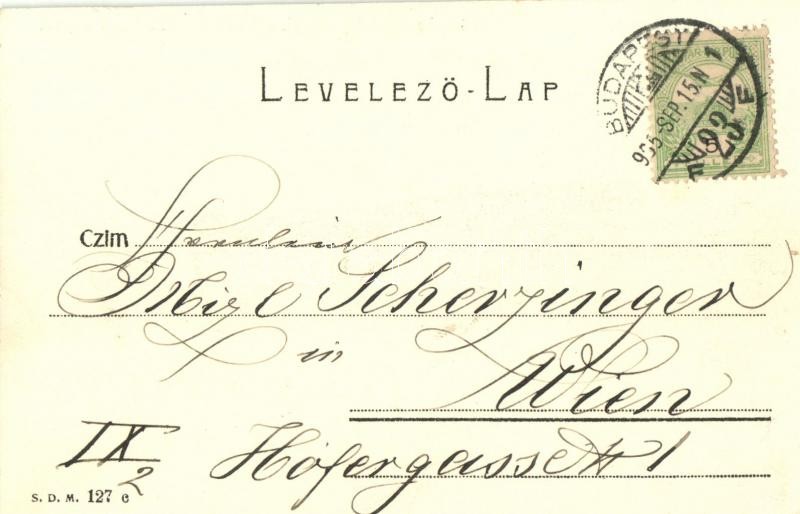 LEVELEZŐ-LAP
BUDAPEST
905 SEP. 15. N 1
23
F F
Czim Fräulein
Mizl Scherzinger
in
Wien
IX/2 Höfergasse № 1
S. D. M. 127 e